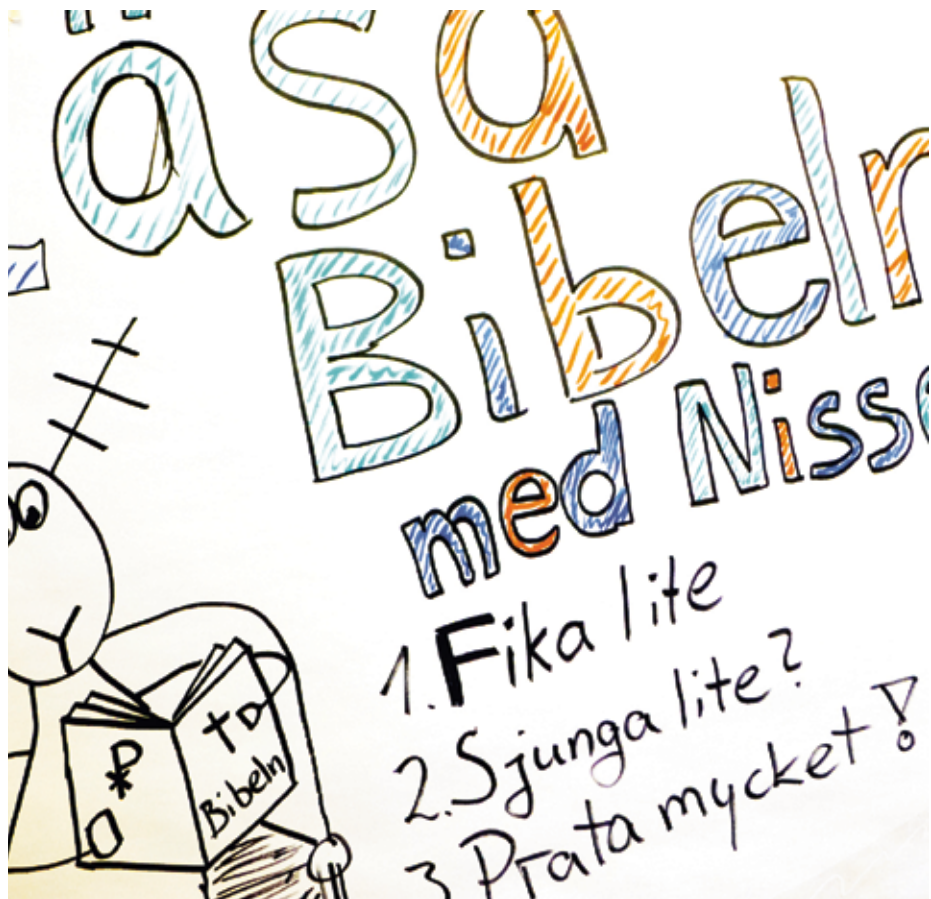 äsa
Bibeln
med Nisse
1. Fika lite
2. Sjunga lite?
3 Prata mycket!
Bibeln